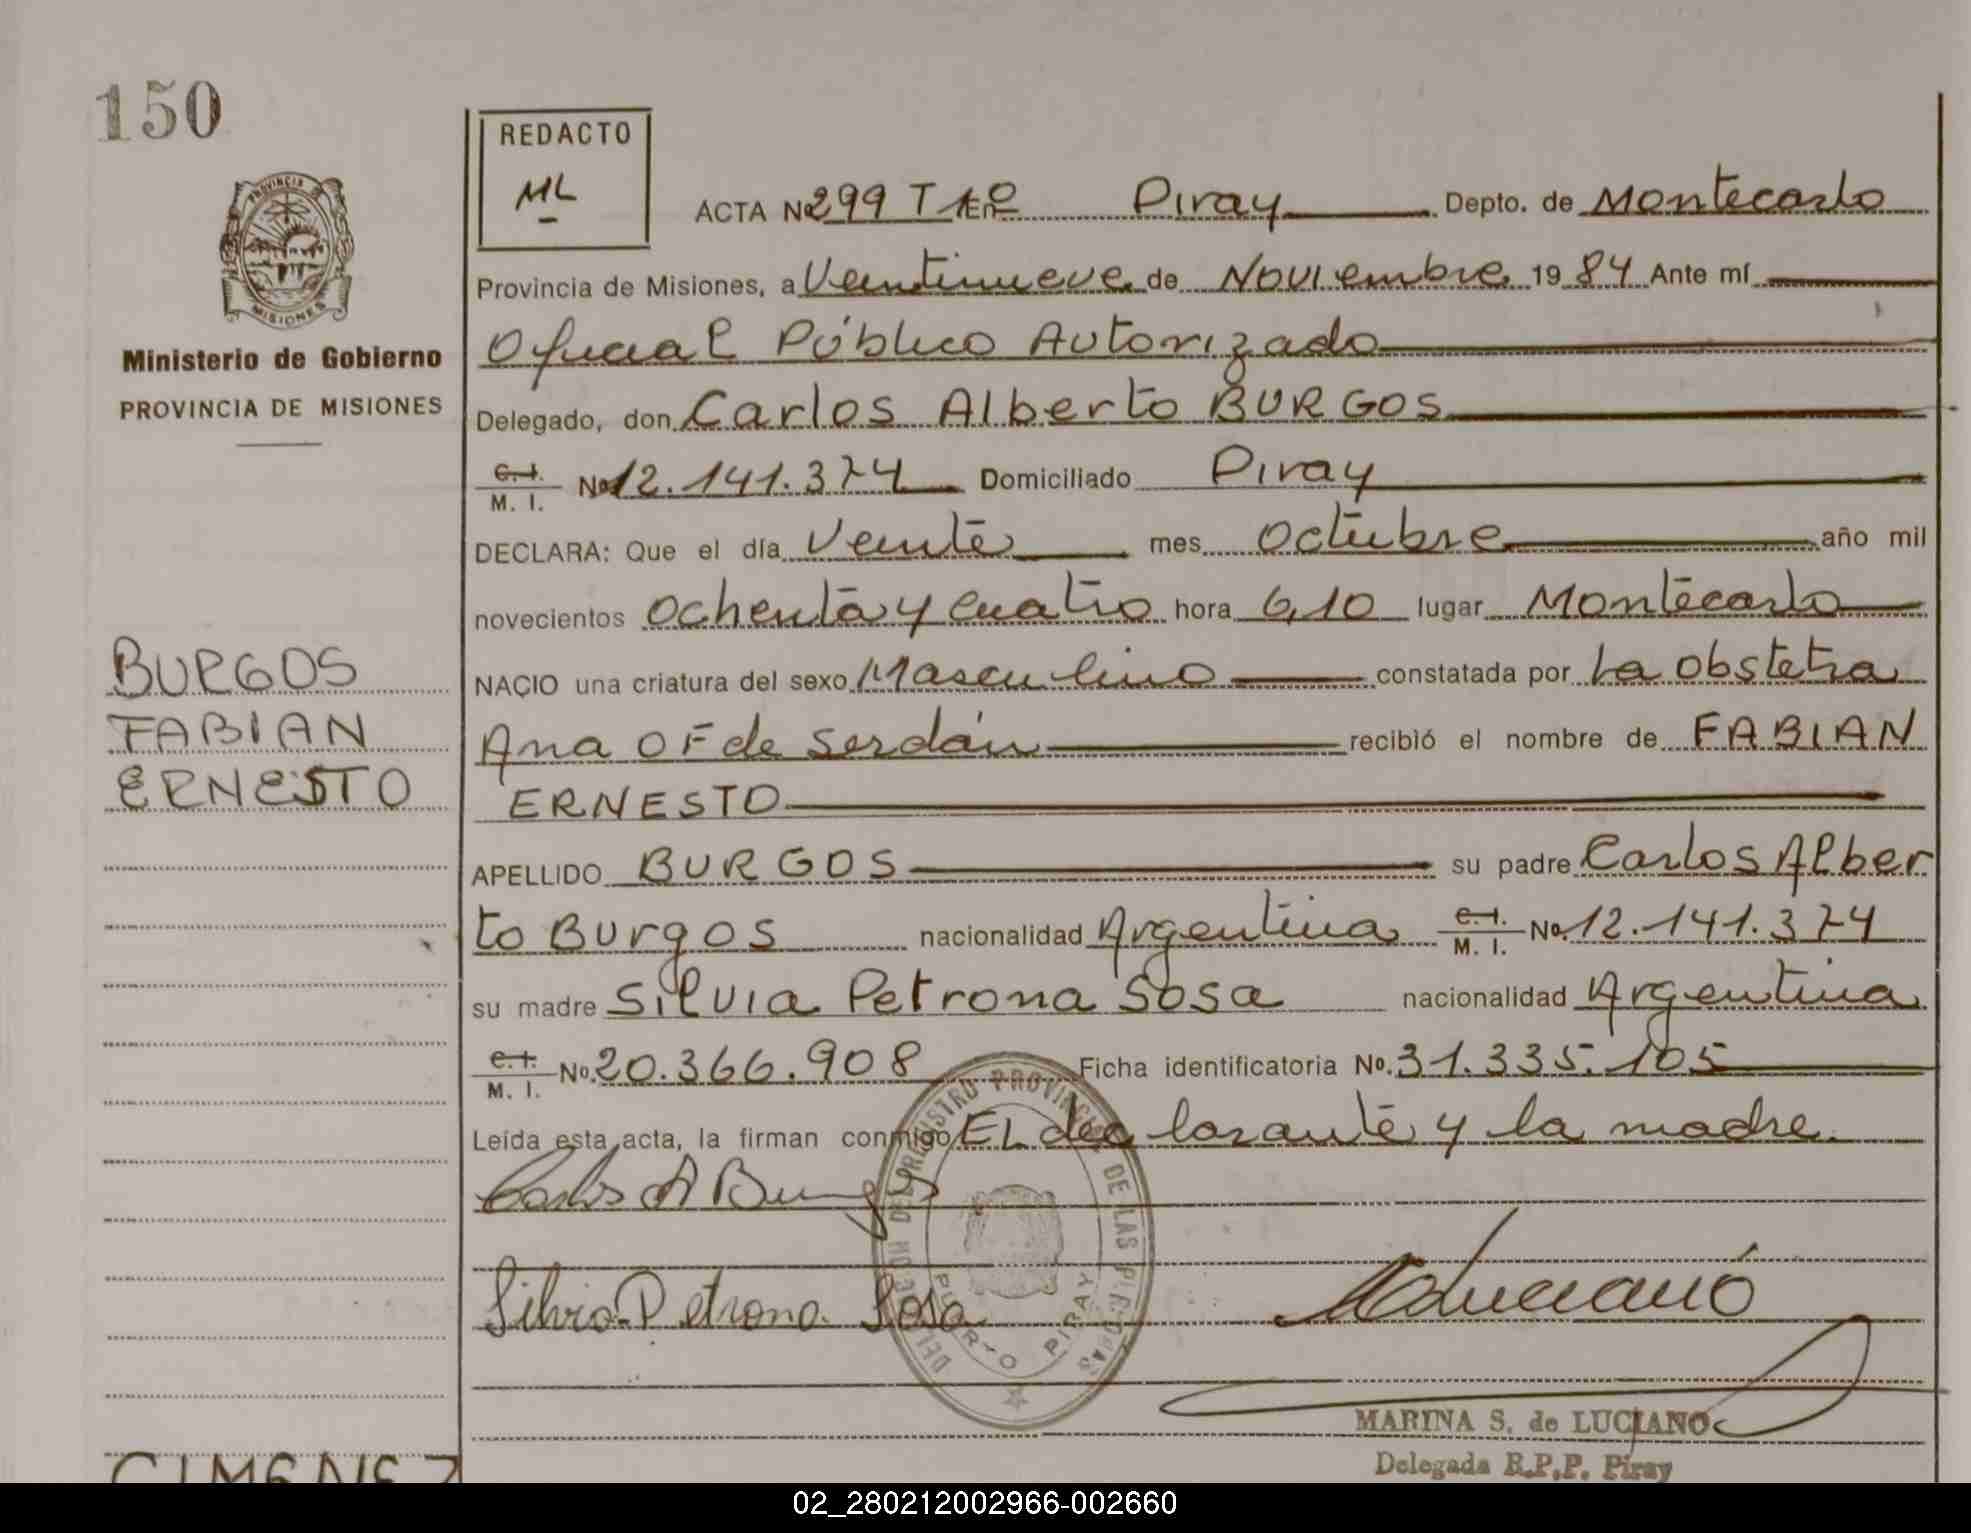 150
REDACTO
ML
PROVINCIA
MISIONES
Ministerio de Gobierno
PROVINCIA DE MISIONES
ACTA No 299 T 1º En Piray Depto. de Montecarlo
Provincia de Misiones, a Veintinueve de Noviembre 19 84 Ante mí
Oficial Público Autorizado
Delegado, don Carlos Alberto BURGOS
C. I.
M. I. No 12.141.374 Domiciliado Piray
DECLARA: Que el día Veinte mes Octubre año mil
novecientos Ochenta y Cuatro hora 6,10 lugar Montecarlo
NACIO una criatura del sexo Masculino constatada por La Obstetra
Ana OF de Serdán recibió el nombre de FABIAN
ERNESTO
APELLIDO BURGOS su padre Carlos Alber
to Burgos nacionalidad Argentina C. I.
M. I. No. 12.141.374
su madre Silvia Petrona Sosa nacionalidad Argentina
C. I.
M. I. No. 20.366.908 Ficha identificatoria No. 31.335.105
Leída esta acta, la firman conmigo EL declarante y la madre.
BURGOS
FABIAN
ERNESTO
Carlos A Burgos
Silvia Petrona Sosa
MLuciano
DEL REGISTRO PROVINCIAL DE LAS PERSONAS
PUERTO PIRAY
MARINA S. de LUCIANO
Delegada R.P.P. Piray
GIMENEZ
02_280212002966-002660